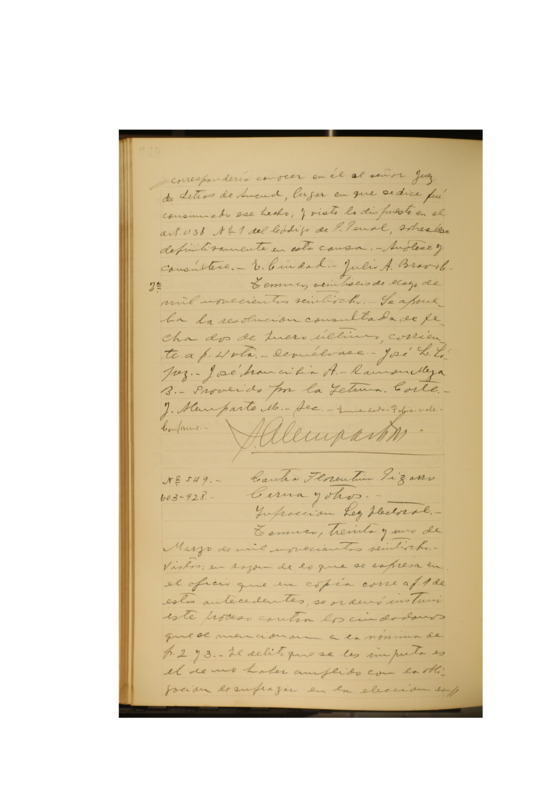 corresponderia conocer en él al señor Juez
de Letras de Ancud, lugar en que se dice fué
consumado ese hecho, y visto lo dispuesto en el
art. 438 Nº 1 del Código de P. Penal, sobresease
definitivamente en esta causa.- Anótese y
consúltese.- E. Ciudad.- Julio A. Bravo
Temuco, veintiseis de Mayo de
mil novecientos veintiocho.- Se aprue-
ba la resolucion consultada de fe-
cha dos de Enero último, corrien-
te a f. vta.- Devuélvase.- José L. Ló-
pez.- José Arancibia A.- Ramon Meza
B.- Proveido por la Iltma. Corte.-
J. Alemparte M.- Sec.-
Conforme.-
J. Alemparte M.
Nº 549.- Contra Florentin Pizarro
403-928.- Cerna y otros.-
Infraccion Ley Electoral.-
Temuco, treinta y uno de
Marzo de mil novecientos veintiocho.-
Vistos: en razon de lo que se espresa en
el oficio que en copia corre a f. 1 de
estos antecedentes, se ordenó instruir
este proceso contra los ciudadanos
que se mencionan en la nómina de
f. 2 y 3.- El delito que se les imputa es
el de no haber cumplido con la obli-
gacion de sufragar en la eleccion